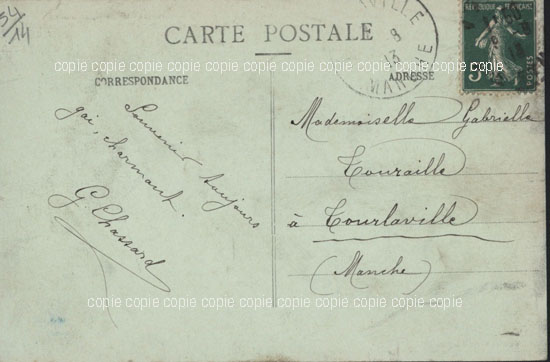 54/14
CARTE POSTALE
CORRESPONDANCE
ADRESSE
VILLE
8
13
MANCHE
REPUBLIQUE FRANÇAISE
5
POSTES
copie copie copie copie copie copie copie copie copie copie
Souvenir toujours
gai, charmant.
G Chassard
Mademoiselle Gabrielle
Touraille
à Tourlaville
(Manche)
copie copie copie copie copie copie copie copie copie copie
copie copie copie copie copie copie copie copie copie copie